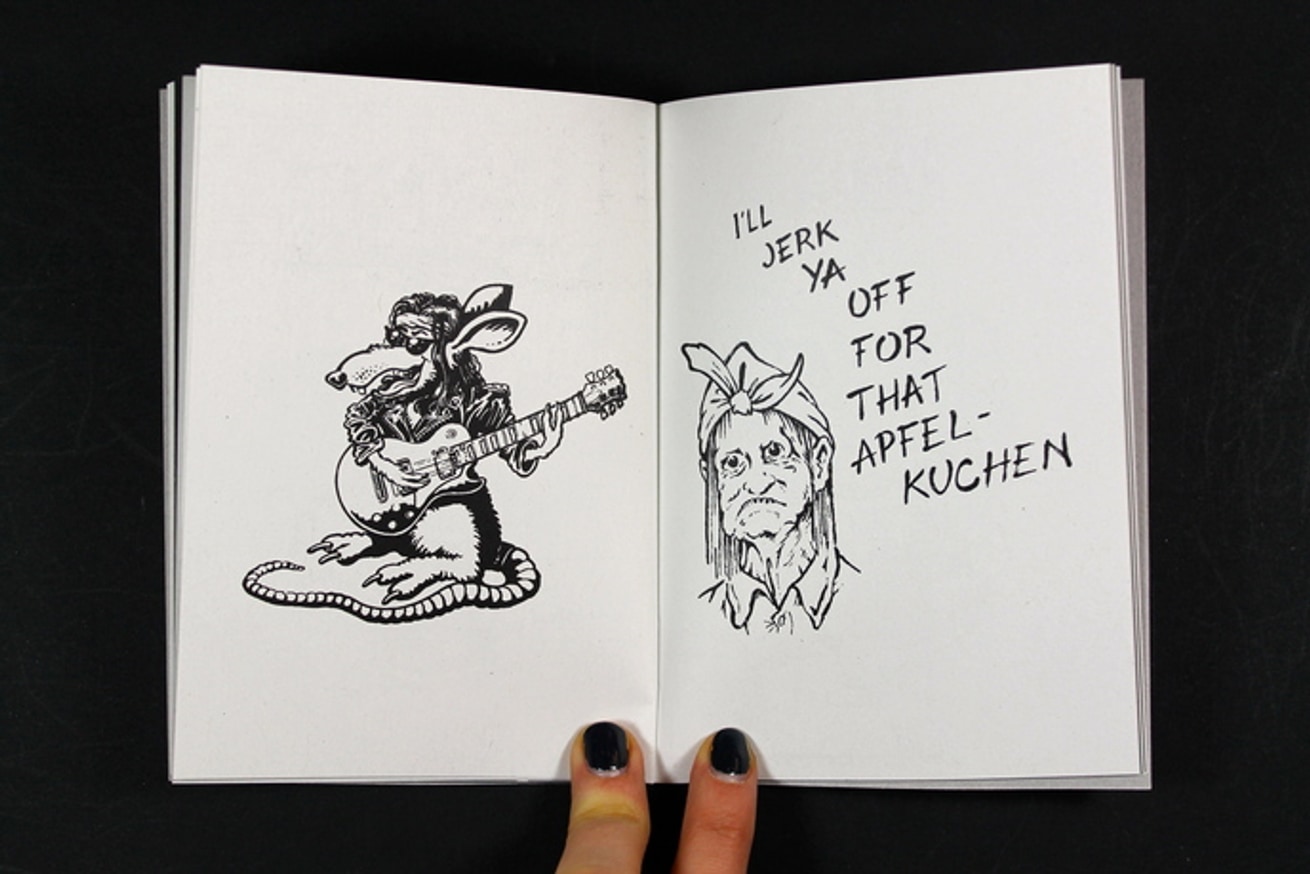 I'LL
JERK
YA
OFF
FOR
THAT
APFEL-
KUCHEN